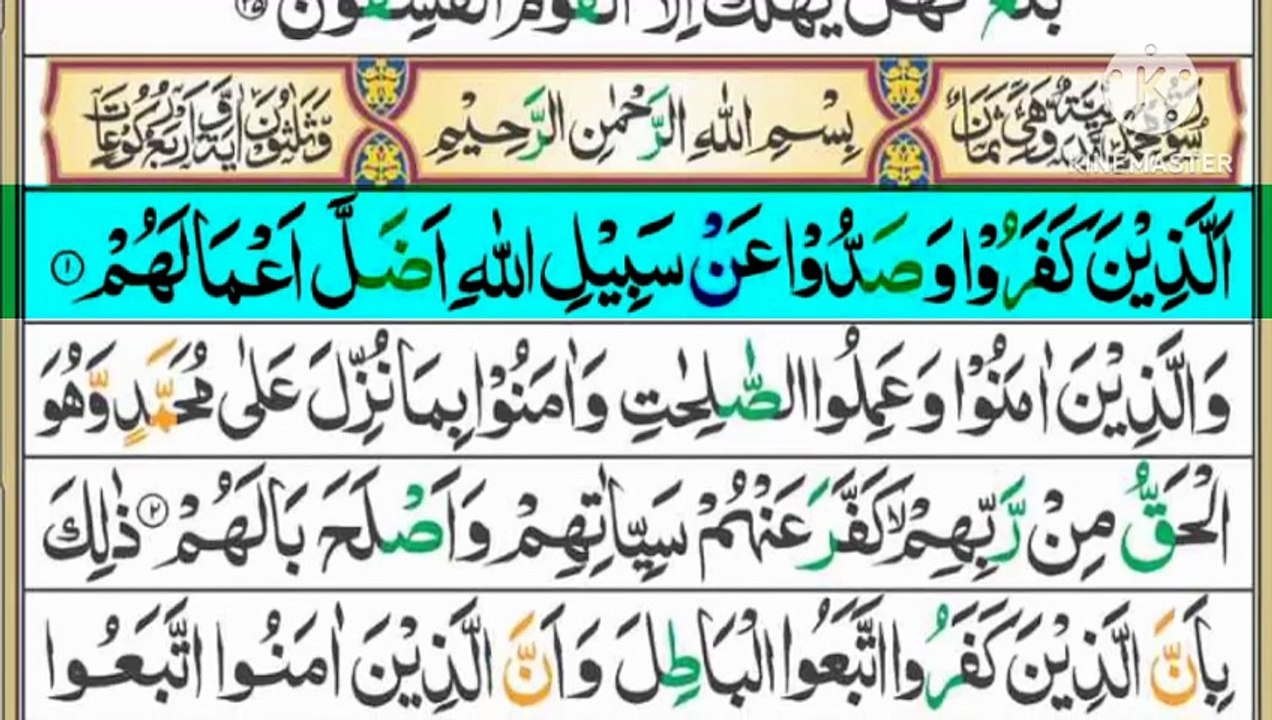 بَلٰغٌ فَهَلْ يُهْلَكُ اِلَّا الْقَوْمُ الْفٰسِقُوْنَ ۳۵
سُوْرَةُ مُحَمَّدٍ مَدَنِيَّةٌ وَّهِيَ ثَمَانٌ
بِسْمِ اللهِ الرَّحْمٰنِ الرَّحِيْمِ
وَّثَلٰثُوْنَ اٰيَةً وَّاَرْبَعُ رُكُوْعَاتٍ
KINEMASTER
اَلَّذِيْنَ كَفَرُوْا وَصَدُّوْا عَنْ سَبِيْلِ اللهِ اَضَلَّ اَعْمَالَهُمْ ۱
وَالَّذِيْنَ اٰمَنُوْا وَعَمِلُوا الصّٰلِحٰتِ وَاٰمَنُوْا بِمَا نُزِّلَ عَلٰى مُحَمَّدٍ وَّهُوَ
الْحَقُّ مِنْ رَّبِّهِمْ ۙ كَفَّرَ عَنْهُمْ سَيِّاٰتِهِمْ وَاَصْلَحَ بَالَهُمْ ۲ ذٰلِكَ
بِاَنَّ الَّذِيْنَ كَفَرُوا اتَّبَعُوا الْبَاطِلَ وَاَنَّ الَّذِيْنَ اٰمَنُوا اتَّبَعُوا